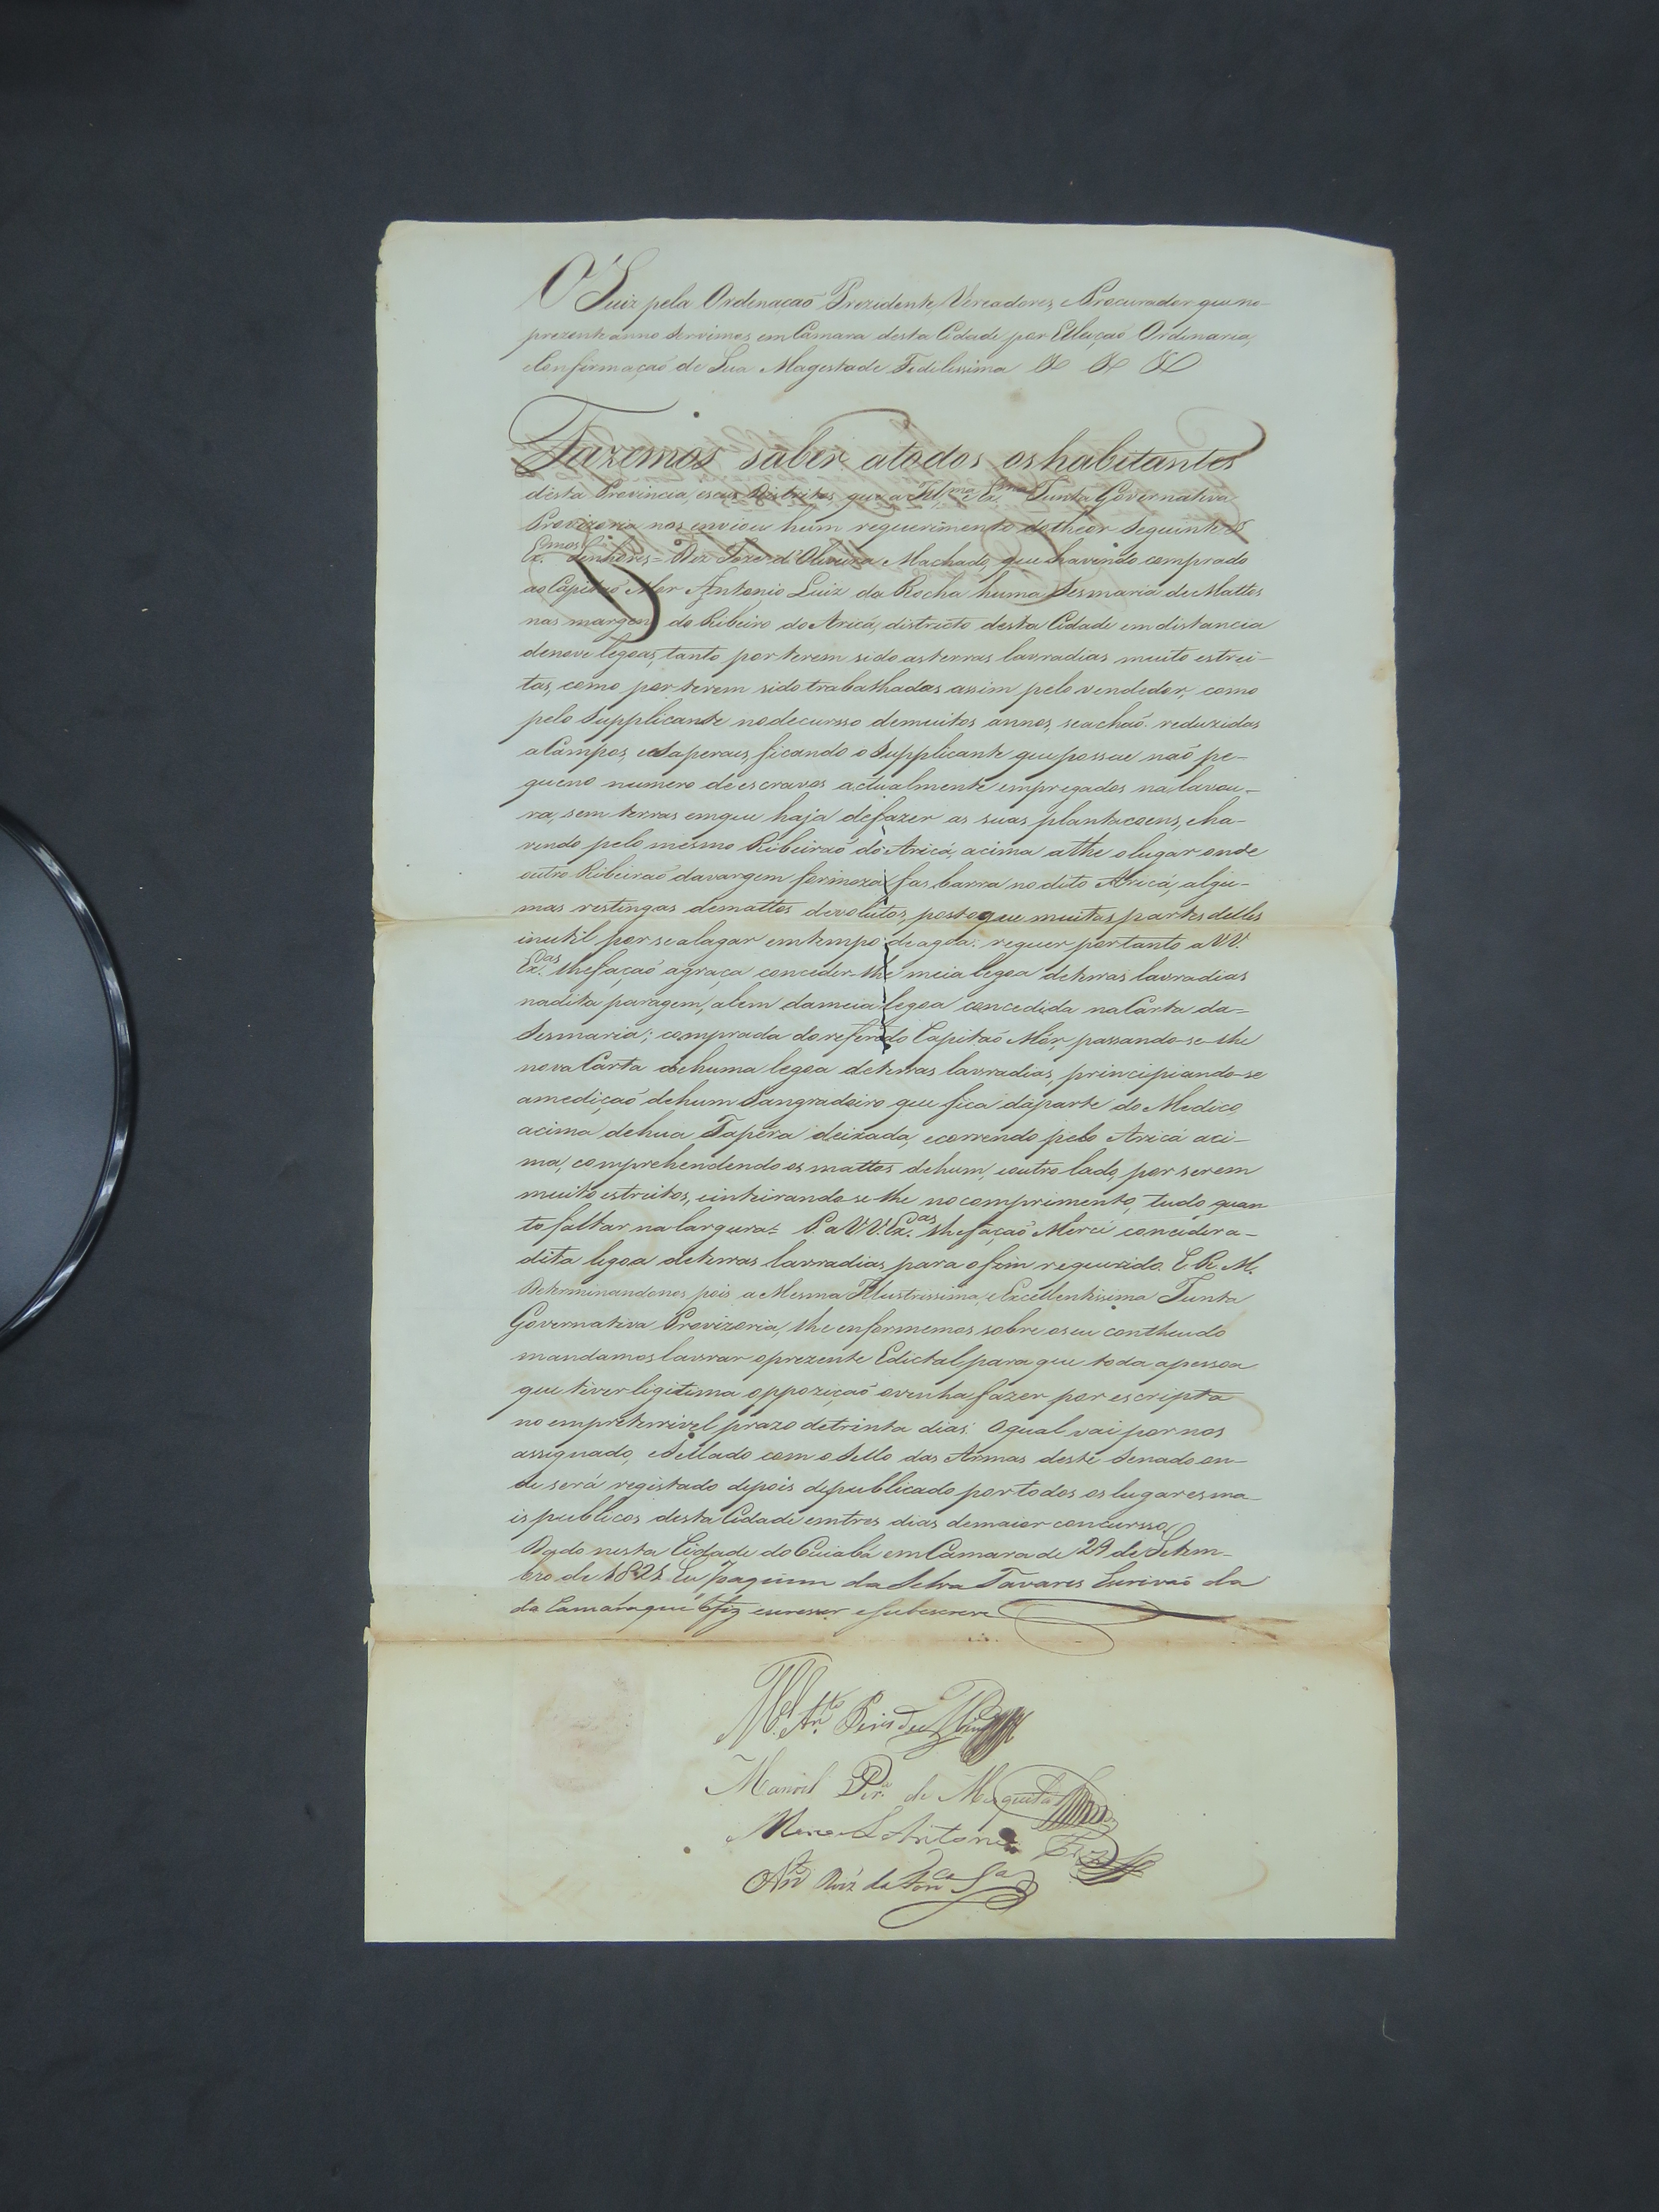 O Juiz pela Ordenaçaõ Prezidente, Vereadores, e Procurador que no
prezente anno servimos em Camara desta Cidade por Elleiçaõ Ordinaria,
e Confirmaçaõ de Sua Magestade Fidelissima & & &
Fazemos saber a todos os habitantes
desta Provincia, e seus Districtos, que a Ill.ma e Ex.ma Junta Governativa
Provizoria nos enviou hum requerimento do theor Seguinte
Ex.mos Senhores = Diz Joze d'Oliveira Machado, que havendo comprado
ao Capitaõ Mor Antonio Luiz da Rocha huma Sesmaria de Mattos
nas margens do Ribeiro do Aricá, districto desta Cidade em distancia
de nove legoas, tanto por terem sido as terras lavradias muito estrei-
tas, como por terem sido trabalhadas assim pelo vendedor, como
pelo Supplicante no decursso de muitos annos, se achaõ reduzidas
a Campos, e Saperaes, ficando o Supplicante que possue naõ pe-
queno numero de escravos actualmente empregados na lavou-
ra, sem terras em que haja de fazer as suas plantacoens, e ha-
vendo pelo mesmo Ribeiraõ do Aricá, acima athe o lugar onde
outro Ribeiraõ da vargem formoza fas barra no dito Aricá, algu-
mas restingas de mattos devolutos, posto que muitas partes delles
inutil por se alagar em tempo de agoa. requer por tanto a VV.
Ex.as lhe façaõ a graça conceder-lhe meia legoa de terras lavradias
na dita paragem, alem da meia legoa concedida na Carta da-
Sesmaria; comprada do referido Capitaõ Mór, passando-se-lhe
nova Carta de huma legoa de terras lavradias, principiando-se
a mediçaõ de hum Sangradoiro que fica da parte do Medico,
acima de hua Tapera deixada, e correndo pelo Aricá aci-
ma, comprehendendo os mattos de hum, e outro lado, por serem
muito estreitos, e inteirando-se-lhe no comprimento, tudo quan
to faltar na largura = P. a VV. Ex.as lhe façaõ Merce conceder a-
dita legoa de terras lavradias para o fim requerido. E. R. M.
Determinandonos pois a Mesma Illustrissima, e Excellentissima Junta
Governativa Provizoria, lhe enformemos sobre o seu contheudo
mandamos lavrar o prezente Edictal, para que toda a pessoa
que tiver ligitima oppoziçaõ o venha fazer por escripto
no empreterrivel prazo de trinta dias. O qual vai por nos
assignado, e Sellado com o Sello das Armas deste Senado on-
de será registado depois de publicado por todos os lugares ma-
is publicos desta Cidade em tres dias de maior concursso
Dado nesta Cidade do Cuiabá em Camara de 29 de Setem-
bro de 1821 Eu Joaquim da Silva Tavares Escrivaõ da
da Camara que o fiz escrever e subscrevi
M.el An.to Pires de
Manoel Per.a de Mesquita
Manoel Antonio
Ant.o Roiz da